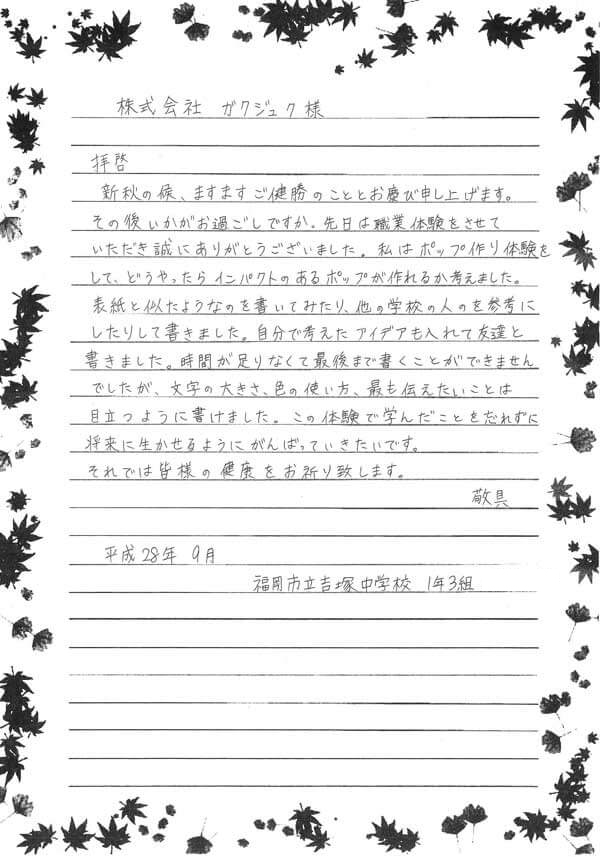 株式会社 ガクジュク様
拝啓
新秋の候、ますますご健勝のこととお慶び申し上げます。
その後いかがお過ごしですか。先日は職業体験をさせて
いただき誠にありがとうございました。私はポップ作り体験を
して、どうやったらインパクトのあるポップが作れるか考えました。
表紙と似たようなのを書いてみたり、他の学校の人のを参考に
したりして書きました。自分で考えたアイデアも入れて友達と
書きました。時間が足りなくて最後まで書くことができません
でしたが、文字の大きさ、色の使い方、最も伝えたいことは
目立つように書けました。この体験で学んだことを忘れずに
将来に生かせるようにがんばっていきたいです。
それでは皆様の健康をお祈り致します。
敬具
平成28年 9月
福岡市立吉塚中学校 1年3組